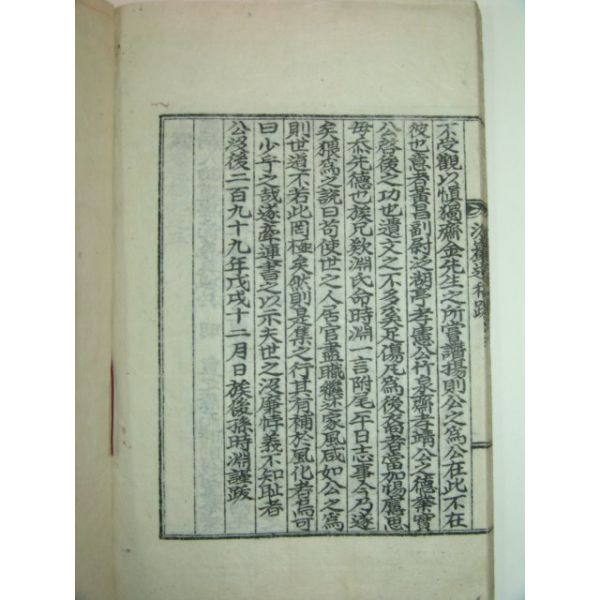 不受觀以愼獨齋金先生之所嘗讚揚則公之爲公在此不在
彼也意者黃昌副尉泛湖亭孝憲公竹泉齋孝靖公之德業實
公啓後之功也遺文之不多奚足傷凡爲後裔者當加惕慮思
毋忝先德也族兄欽淵氏命時淵一言附尾平日志事今乃遂
矣猥爲之說曰苟使世之人居官盡職繼述家風咸如公之爲
則世道不若此罔極矣然則是集之行其有補於風化者焉可
曰少乎之哉遂牽連書之以示夫世之沒廉悖義不知耻者
公沒後二百九十九年戊戌十二月日族後孫時淵謹跋